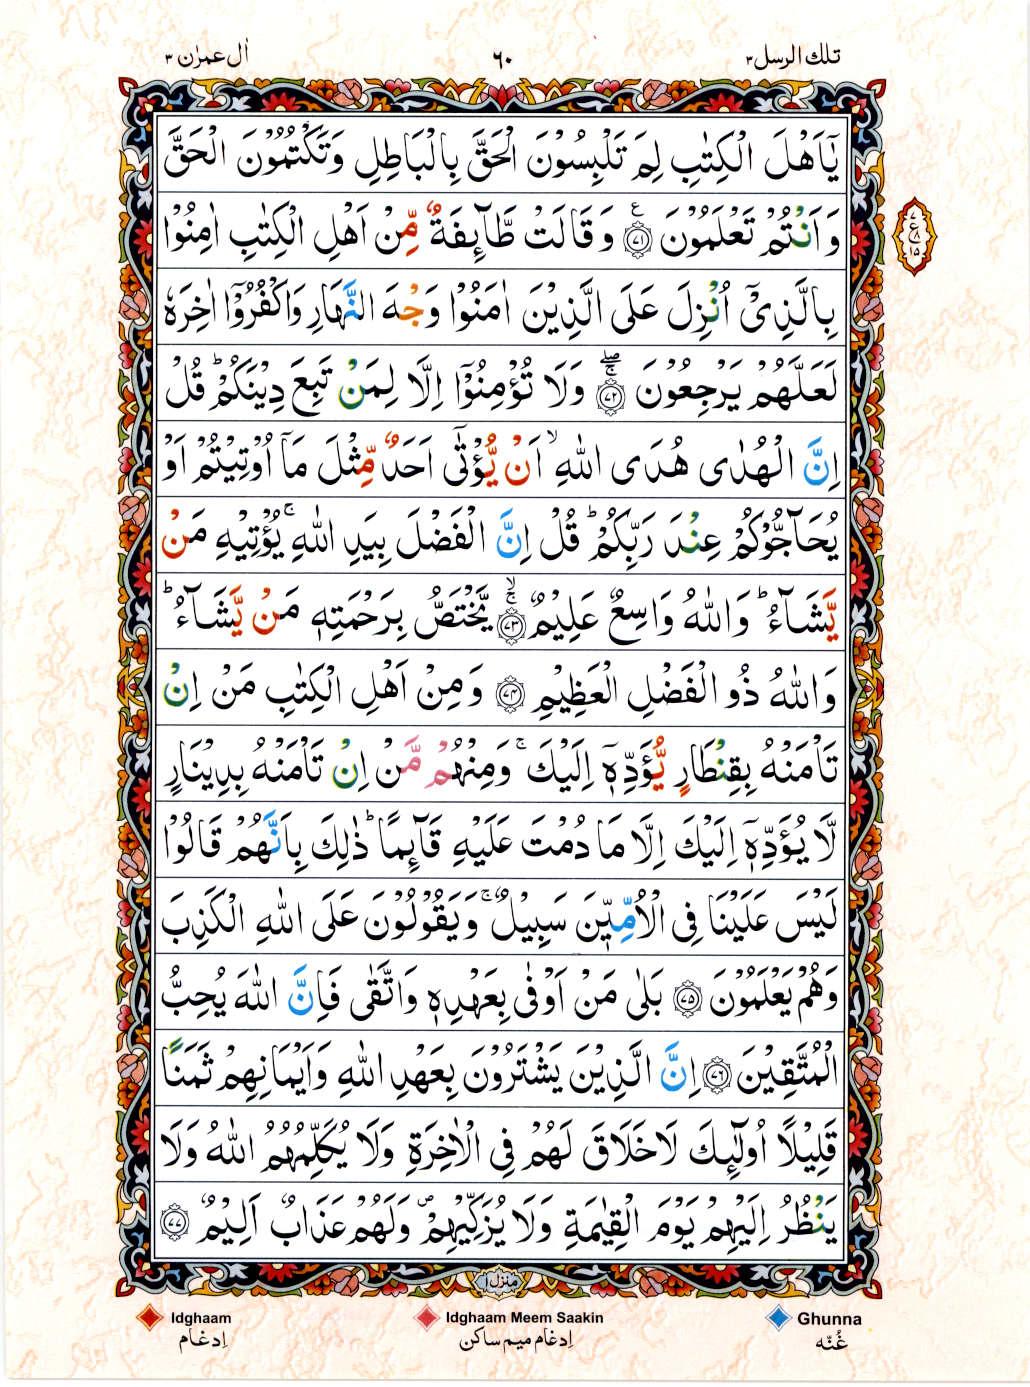 تلك الرسل ٣
٦٠
اٰل عمرٰن ٣
يٰۤاَهْلَ الْكِتٰبِ لِمَ تَلْبِسُوْنَ الْحَقَّ بِالْبَاطِلِ وَتَكْتُمُوْنَ الْحَقَّ
وَاَنْتُمْ تَعْلَمُوْنَ ﴿٧١﴾ ع وَقَالَتْ طَّآئِفَةٌ مِّنْ اَهْلِ الْكِتٰبِ اٰمِنُوْا
٧
ع ٨
١٥
بِالَّذِيْۤ اُنْزِلَ عَلَى الَّذِيْنَ اٰمَنُوْا وَجْهَ النَّهَارِ وَاكْفُرُوْۤا اٰخِرَهٗ
لَعَلَّهُمْ يَرْجِعُوْنَ ﴿٧٢﴾ ۖۚ وَلَا تُؤْمِنُوْۤا اِلَّا لِمَنْ تَبِعَ دِيْنَكُمْ ؕ قُلْ
اِنَّ الْهُدٰى هُدَى اللّٰهِ ۙ اَنْ يُّؤْتٰۤى اَحَدٌ مِّثْلَ مَاۤ اُوْتِيْتُمْ اَوْ
يُحَآجُّوْكُمْ عِنْدَ رَبِّكُمْ ؕ قُلْ اِنَّ الْفَضْلَ بِيَدِ اللّٰهِ ۚ يُؤْتِيْهِ مَنْ
يَّشَآءُ ؕ وَاللّٰهُ وَاسِعٌ عَلِيْمٌ ﴿٧٣﴾ ۙۚ يَّخْتَصُّ بِرَحْمَتِهٖ مَنْ يَّشَآءُ ؕ
وَاللّٰهُ ذُو الْفَضْلِ الْعَظِيْمِ ﴿٧٤﴾ وَمِنْ اَهْلِ الْكِتٰبِ مَنْ اِنْ
تَاْمَنْهُ بِقِنْطَارٍ يُّؤَدِّهٖۤ اِلَيْكَ ۚ وَمِنْهُمْ مَّنْ اِنْ تَاْمَنْهُ بِدِيْنَارٍ
لَّا يُؤَدِّهٖۤ اِلَيْكَ اِلَّا مَا دُمْتَ عَلَيْهِ قَآئِمًا ؕ ذٰلِكَ بِاَنَّهُمْ قَالُوْا
لَيْسَ عَلَيْنَا فِى الْاُمِّيّٖنَ سَبِيْلٌ ۚ وَيَقُوْلُوْنَ عَلَى اللّٰهِ الْكَذِبَ
وَهُمْ يَعْلَمُوْنَ ﴿٧٥﴾ بَلٰى مَنْ اَوْفٰى بِعَهْدِهٖ وَاتَّقٰى فَاِنَّ اللّٰهَ يُحِبُّ
الْمُتَّقِيْنَ ﴿٧٦﴾ اِنَّ الَّذِيْنَ يَشْتَرُوْنَ بِعَهْدِ اللّٰهِ وَاَيْمَانِهِمْ ثَمَنًا
قَلِيْلًا اُولٰٓئِكَ لَا خَلَاقَ لَهُمْ فِى الْاٰخِرَةِ وَلَا يُكَلِّمُهُمُ اللّٰهُ وَلَا
يَنْظُرُ اِلَيْهِمْ يَوْمَ الْقِيٰمَةِ وَلَا يُزَكِّيْهِمْ ۪ وَلَهُمْ عَذَابٌ اَلِيْمٌ ﴿٧٧﴾
منزل ١
Ghunna
غُنّه
Idghaam Meem Saakin
اِدغام ميم ساكن
Idghaam
اِدغام